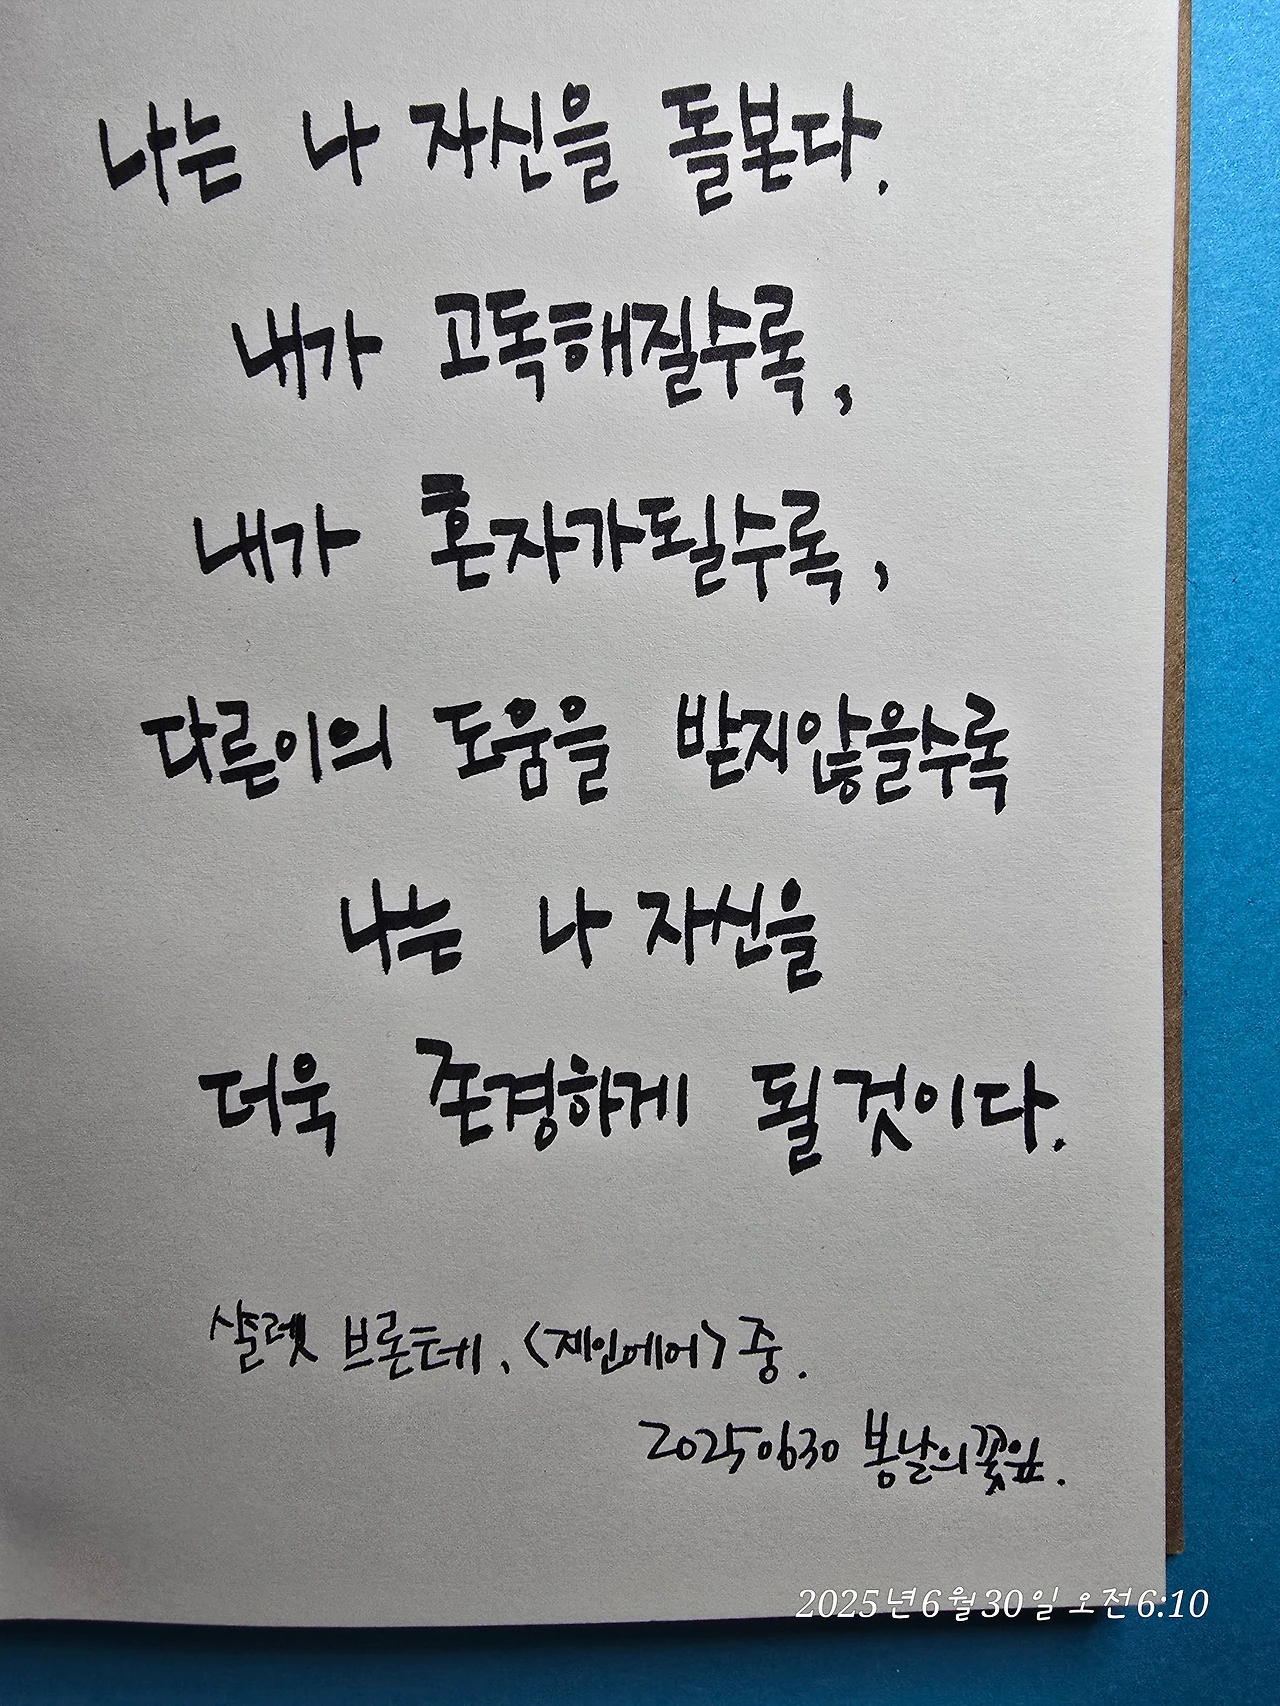 나는 나 자신을 돌본다.
내가 고독해질수록,
내가 혼자가될수록,
다른이의 도움을 받지않을수록
나는 나 자신을
더욱 존경하게 될것이다.
샬롯 브론테, <제인에어> 중.
20250630 봄날의꽃잎.
2025년 6월 30일 오전 6:10